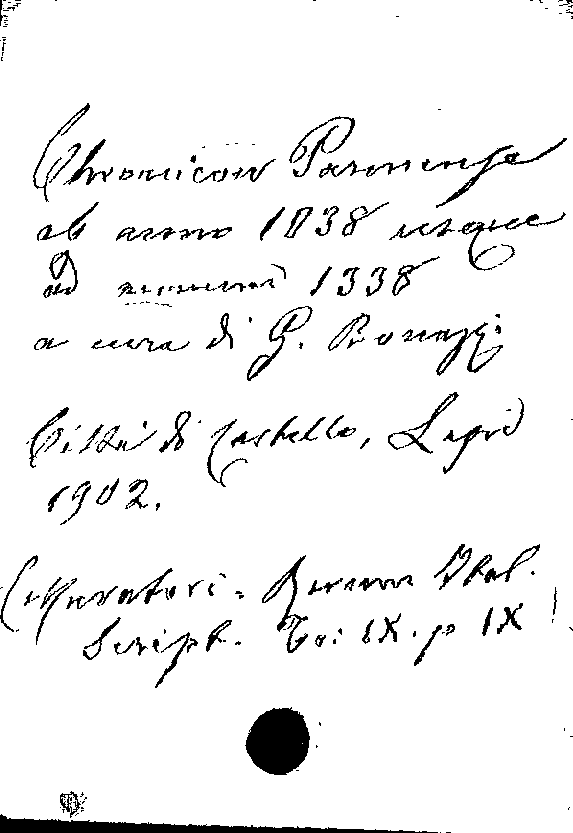 Chronicon Parmense
ab anno 1038 usque
ad annum 1338
a cura di G. Bonazzi
Città di Castello, Lapi
1902.
(Muratori. Rerum Ital.
Script. To: IX. p IX)